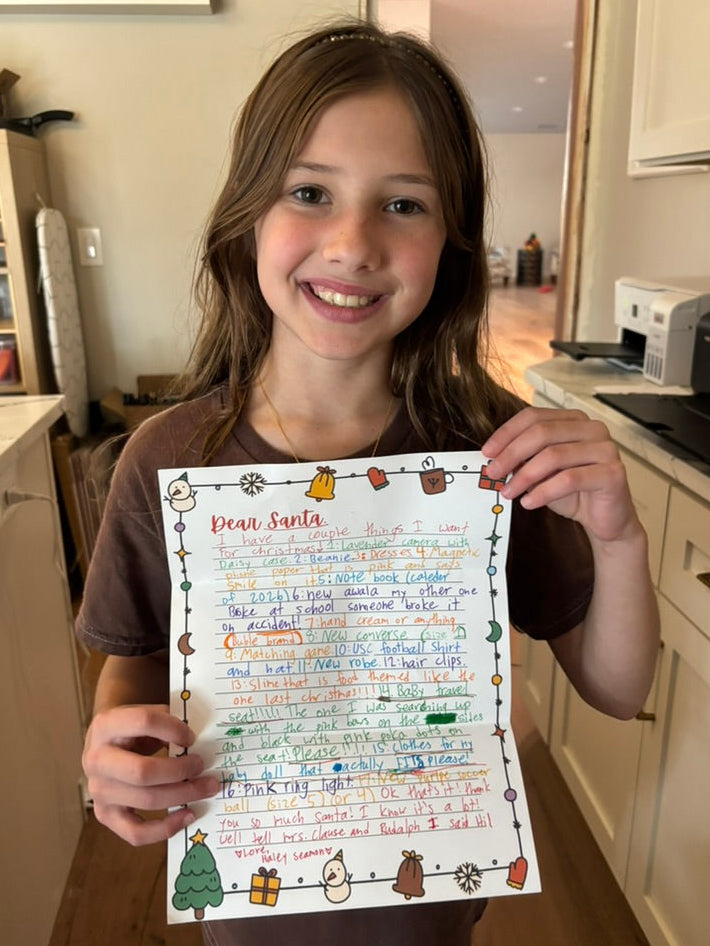 Dear Santa,
I have a couple things I want
for christmas! 1: Lavender camera with
Daisy case. 2: Beanie. 3: Dresses 4. Magnetic
phone paper that is pink and says
smile on it 5: Note book (caleder
of 2026) 6: new awala my other one
Broke at school someone broke it
on accident! 7: hand cream or anything
buble brand 8: New converse (size
9: Matching game 10: USC football shirt
and hat 11: New robe. 12: hair clips.
13: Slime that is food themed like the
one last christmas!!!! 14 BaBy travel
seat!!!!! The one I was searching up
with the pink bows on the sides
and black with pink poka dots on
the seat! Please!!!! 15 clothes for my
baby doll that actully FITS please!
16: Pink ring light 17: New soccer
ball (size 5) (or 4) Ok that's it! thank
you so much Santa! I know it's a lot!
Well tell mrs. Clause and Rudalph I said Hi!
Love,
Haley Seamon